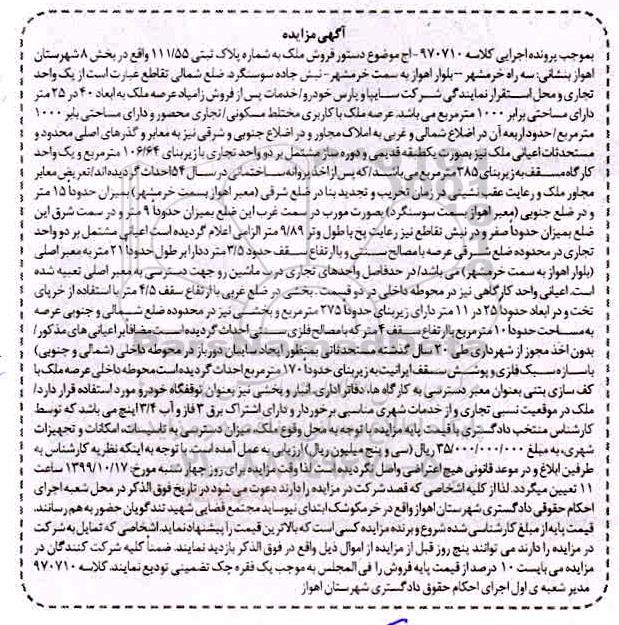 آگهی مزایده
بموجب پرونده اجرایی کلاسه ۹۷۰۷۱۰ - اج موضوع دستور فروش ملک به شماره پلاک ثبتی ۱۱۱/۵۵ واقع در بخش ۸ شهرستان
اهواز بنشانی: سه راه خرمشهر -- بلوار اهواز به سمت خرمشهر - نبش جاده سوسنگرد، ضلع شمالی تقاطع عبارت است از یک واحد
تجاری و محل استقرار نمایندگی شرکت سایپا و پارس خودرو / خدمات پس از فروش زامیاد عرصه ملک به ابعاد ۴۰ در ۲۵ متر
دارای مساحتی برابر ۱۰۰۰ مترمربع می باشد. عرصه ملک با کاربری مختلط مسکونی / تجاری محصور و دارای مساحتی بابر ۱۰۰۰
مترمربع / حدود اربعه آن در اضلاع شمالی و غربی به املاک مجاور و در اضلاع جنوبی و شرقی نیز به معابر و گذرهای اصلی محدود و
مستحدثات اعیانی ملک نیز بصورت یکطبقه قدیمی و دوره ساز مشتمل بر دو واحد تجاری با زیربنای ۱۰۶/۶۴ مترمربع و یک واحد
کارگاه مسقف به زیربنای ۳۸۵ مترمربع می باشند / که پس از اخذ پروانه ساختمانی در سال ۵۴ احداث گردیده اند / تعریض معابر
مجاور ملک و رعایت عقب نشینی در زمان تخریب و تجدید بنا در ضلع شرقی (معبر اهواز بسمت خرمشهر) بمیزان حدوداً ۱۵ متر
و در ضلع جنوبی (معبر اهواز بسمت سوسنگرد) بصورت مورب در سمت غرب این ضلع بمیزان حدوداً ۹ متر و در سمت شرق این
ضلع بمیزان حدوداً صفر و در نبش تقاطع نیز رعایت پخ با طول وتر ۹/۸۹ متر الزامی اعلام گردیده است اعیانی مشتمل بر دو واحد
تجاری در محدوده ضلع شرقی عرصه با مصالح سنتی و با ارتفاع سقف حدود ۳/۵ متر ددارا بر طول حدوداً ۲۱ متر به معبر اصلی
(بلوار اهواز به سمت خرمشهر) می باشد / در حدفاصل واحدهای تجاری درب ماشین رو جهت دسترسی به معبر اصلی تعبیه شده
است. اعیانی واحد کارگاهی نیز در محوطه داخلی در دو قسمت. بخشی در ضلع غربی با ارتفاع سقف ۴/۵ متر با استفاده از خرپای
تخت و در ابعاد حدوداً ۲۵ در ۱۱ متر دارای زیربنای حدوداً ۲۷۵ مترمربع و بخشی نیز در محدوده ضلع شمالی و جنوبی عرصه
به مساحت حدوداً ۱۰ مترمربع با ارتفاع سقف ۴ متر که با مصالح فلزی سنتی احداث گردیده است مضافا بر اعیانی های مذکور /
بدون اخذ مجوز از شهرداری طی ۲۰ سال گذشته مستحدثاتی بمنظور ایجاد سایبان دورباز در محوطه داخلی (شمالی و جنوبی)
با سازه سبک فلزی و پوشش سقف ایرانیت به زیربنای حدوداً ۱۷۰ مترمربع احداث گردیده است محوطه داخلی عرصه ملک با
کف سازی بتنی بعنوان معبر دسترسی به کارگاه ها، دفاتر اداری، انبار و بخشی نیز بعنوان توقفگاه خودرو مورد استفاده قرار دارد /
ملک در موقعیت نسبی تجاری و از خدمات شهری مناسبی برخوردار و دارای اشتراک برق ۳ فاز و آب ۳/۴ اینچ می باشد که توسط
کارشناس منتخب دادگستری با قیمت پایه مزایده با توجه به محل وقوع ملک، میزان دسترسی به تاسیسات، امکانات و تجهیزات
شهری، به مبلغ ۳۵/۰۰۰/۰۰۰/۰۰۰ ریال (سی و پنج میلیون ریال) ارزیابی به عمل آمده است با توجه به اینکه نظریه کارشناس به
طرفین ابلاغ و در موعد قانونی هیچ اعتراضی واصل نگردیده است لذا وقت مزایده برای روز چهار شنبه مورخ: ۱۳۹۹/۱۰/۱۷ ساعت
۱۱ تعیین میگردد. لذا از کلیه اشخاصی که قصد شرکت در مزایده را دارند دعوت می شود در تاریخ فوق الذکر در محل شعبه اجرای
احکام حقوقی دادگستری شهرستان اهواز واقع در خرمکوشک ابتدای نیوساید مجتمع قضایی شهید تندگویان حضور به هم رسانند.
قیمت پایه از مبلغ کارشناسی شده شروع و برنده مزایده کسی است که بالاترین قیمت را پیشنهاد نماید. اشخاصی که تمایل به شرکت
در مزایده را دارند می توانند پنج روز قبل از مزایده از اموال ذیل واقع در فوق الذکر بازدید نمایند. ضمناً کلیه شرکت کنندگان در
مزایده می بایست ۱۰ درصد از قیمت پایه فروش را فی المجلس به موجب یک فقره چک تضمینی تودیع نمایند. کلاسه ۹۷۰۷۱۰
مدیر شعبه ی اول اجرای احکام حقوق دادگستری شهرستان اهواز